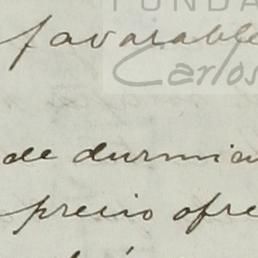 FUNDA
Carlos
favorable
de durmia
precio ofre